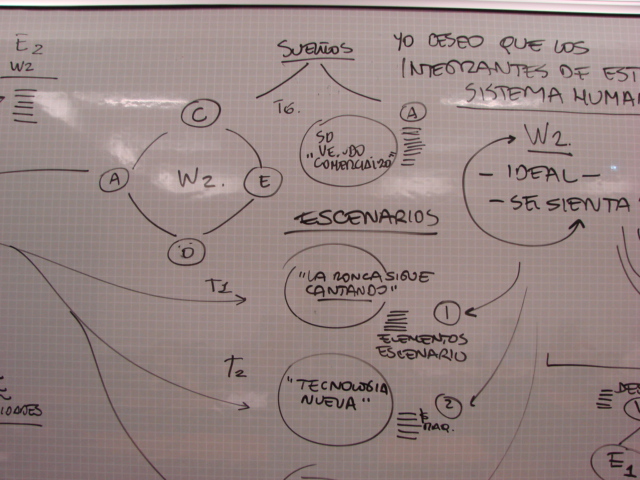 E2
W2
SUEÑOS
T6.
A
SD
"VE.UDO
COMERCIALIZO"
YO DESEO QUE LOS
INTEGRANTES DE EST
SISTEMA HUMA
W2.
- IDEAL -
- SE SIENTA
C
A
W2.
E
D
ESCENARIOS
T1
"LA RONCA SIGUE
CANTANDO"
1
ELEMENTOS
ESCENARIO
T2
"TECNOLOGIA
NUEVA"
2
E1